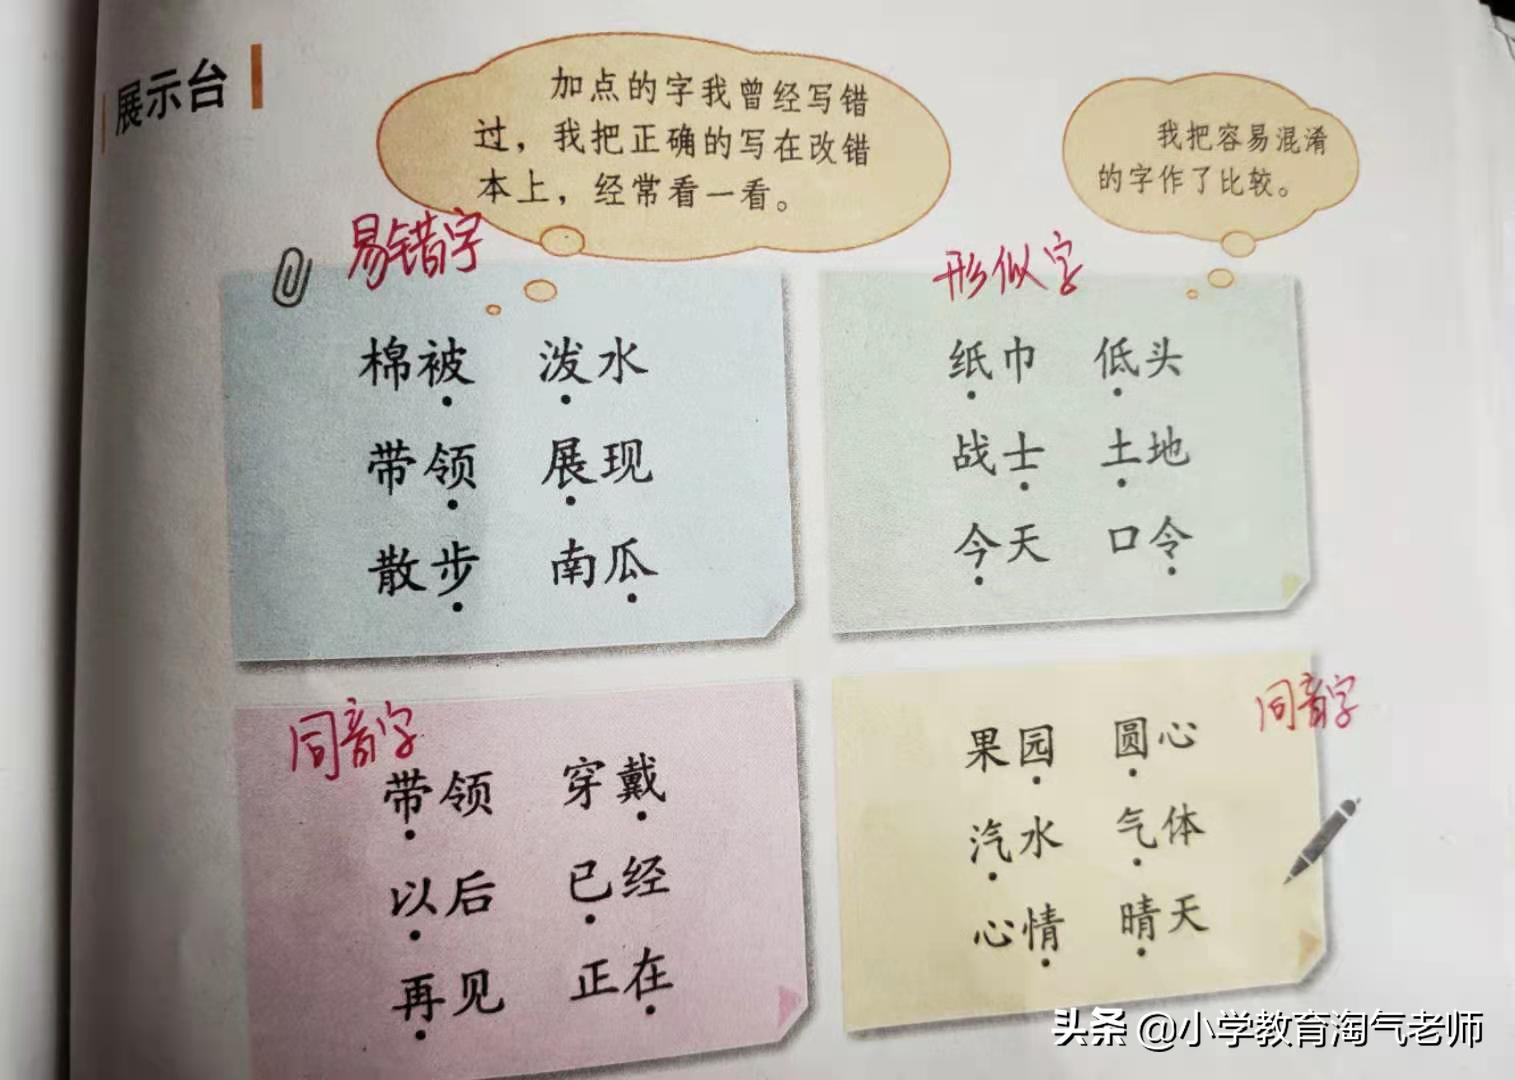 展示台
加点的字我曾经写错
过，我把正确的写在改错
本上，经常看一看。
我把容易混淆
的字作了比较。
易错字
棉被 泼水
带领 展现
散步 南瓜
形似字
纸巾 低头
战士 土地
今天 口令
同音字
带领 穿戴
以后 已经
再见 正在
同音字
果园 圆心
汽水 气体
心情 晴天
头条 @小学教育淘气老师